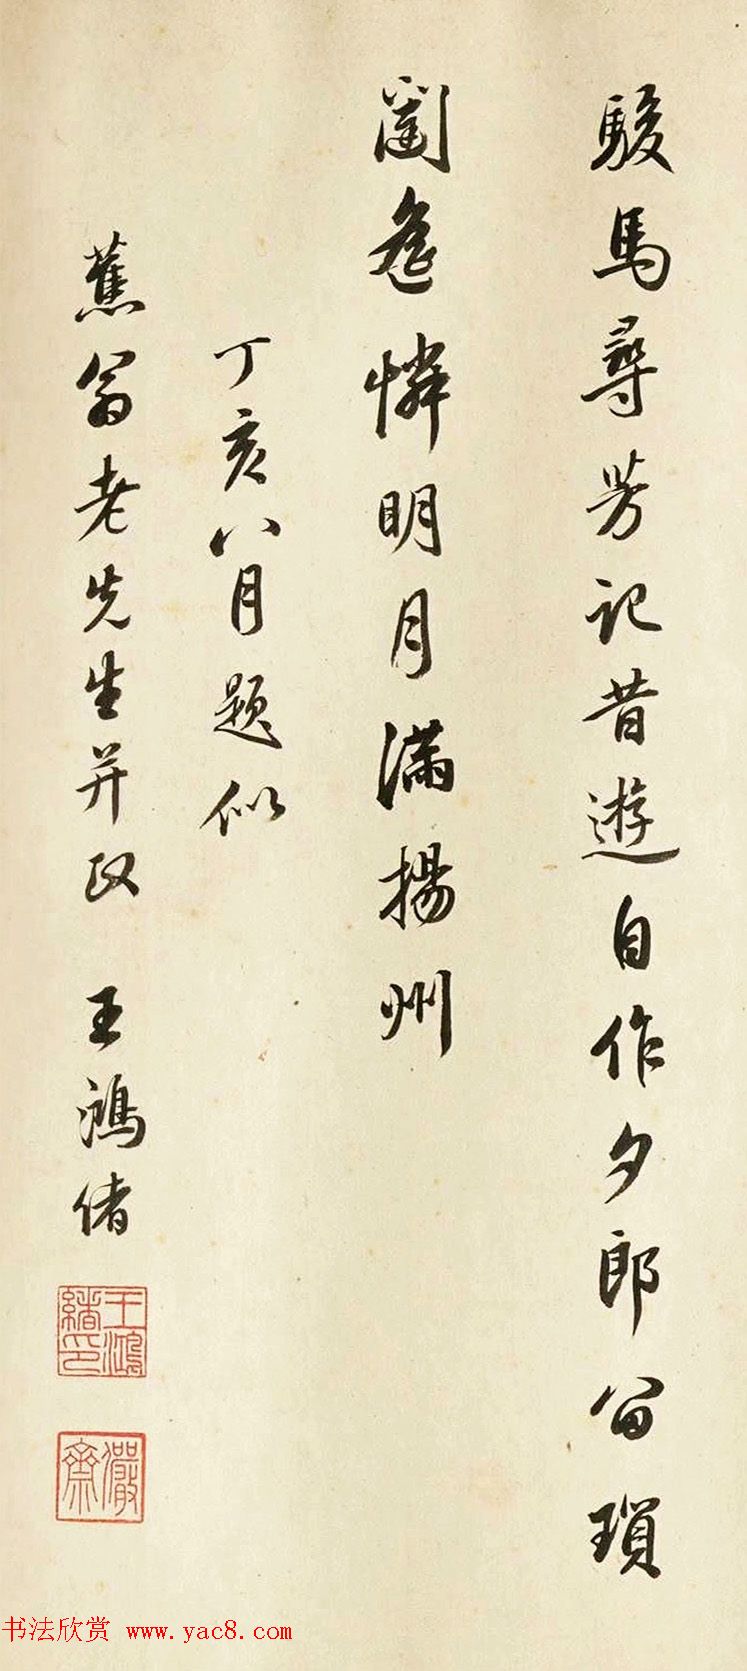 駿馬尋芳記昔遊自作夕郎留瑣
闥遙憐明月滿揚州
丁亥八月題似
蕉翁老先生并政 王鴻緒
王鴻緒印
儼齋
书法欣赏 www.yac8.com